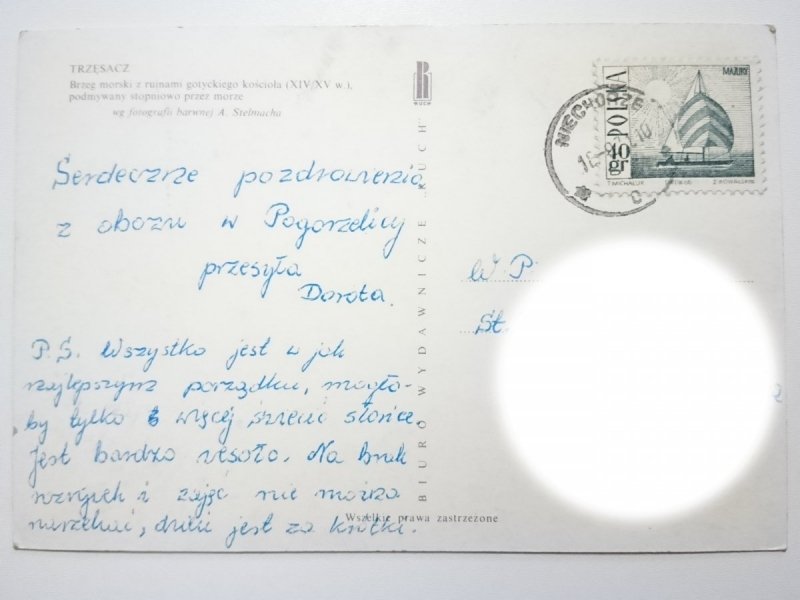 TRZĘSACZ
Brzeg morski z ruinami gotyckiego kościoła (XIV/XV w.),
podmywany stopniowo przez morze
wg fotografii barwnej A. Stelmacha
RUCH
Serdeczne pozdrowienia
z obozu w Pogorzelicy
przesyła
Dorota.
P.S. Wszystko jest w jak
najlepszym porządku, mogło-
by tylko więcej świecić słońce
Jest bardzo wesoło. Na brak
rozrywek i zajęć nie można
narzekać, dzień jest za krótki.
BIURO WYDAWNICZE „RUCH"
Wszelkie prawa zastrzeżone
NIECHORZE
MAZURY
POLSKA
40 gr
T. MICHALUK
W P
St.